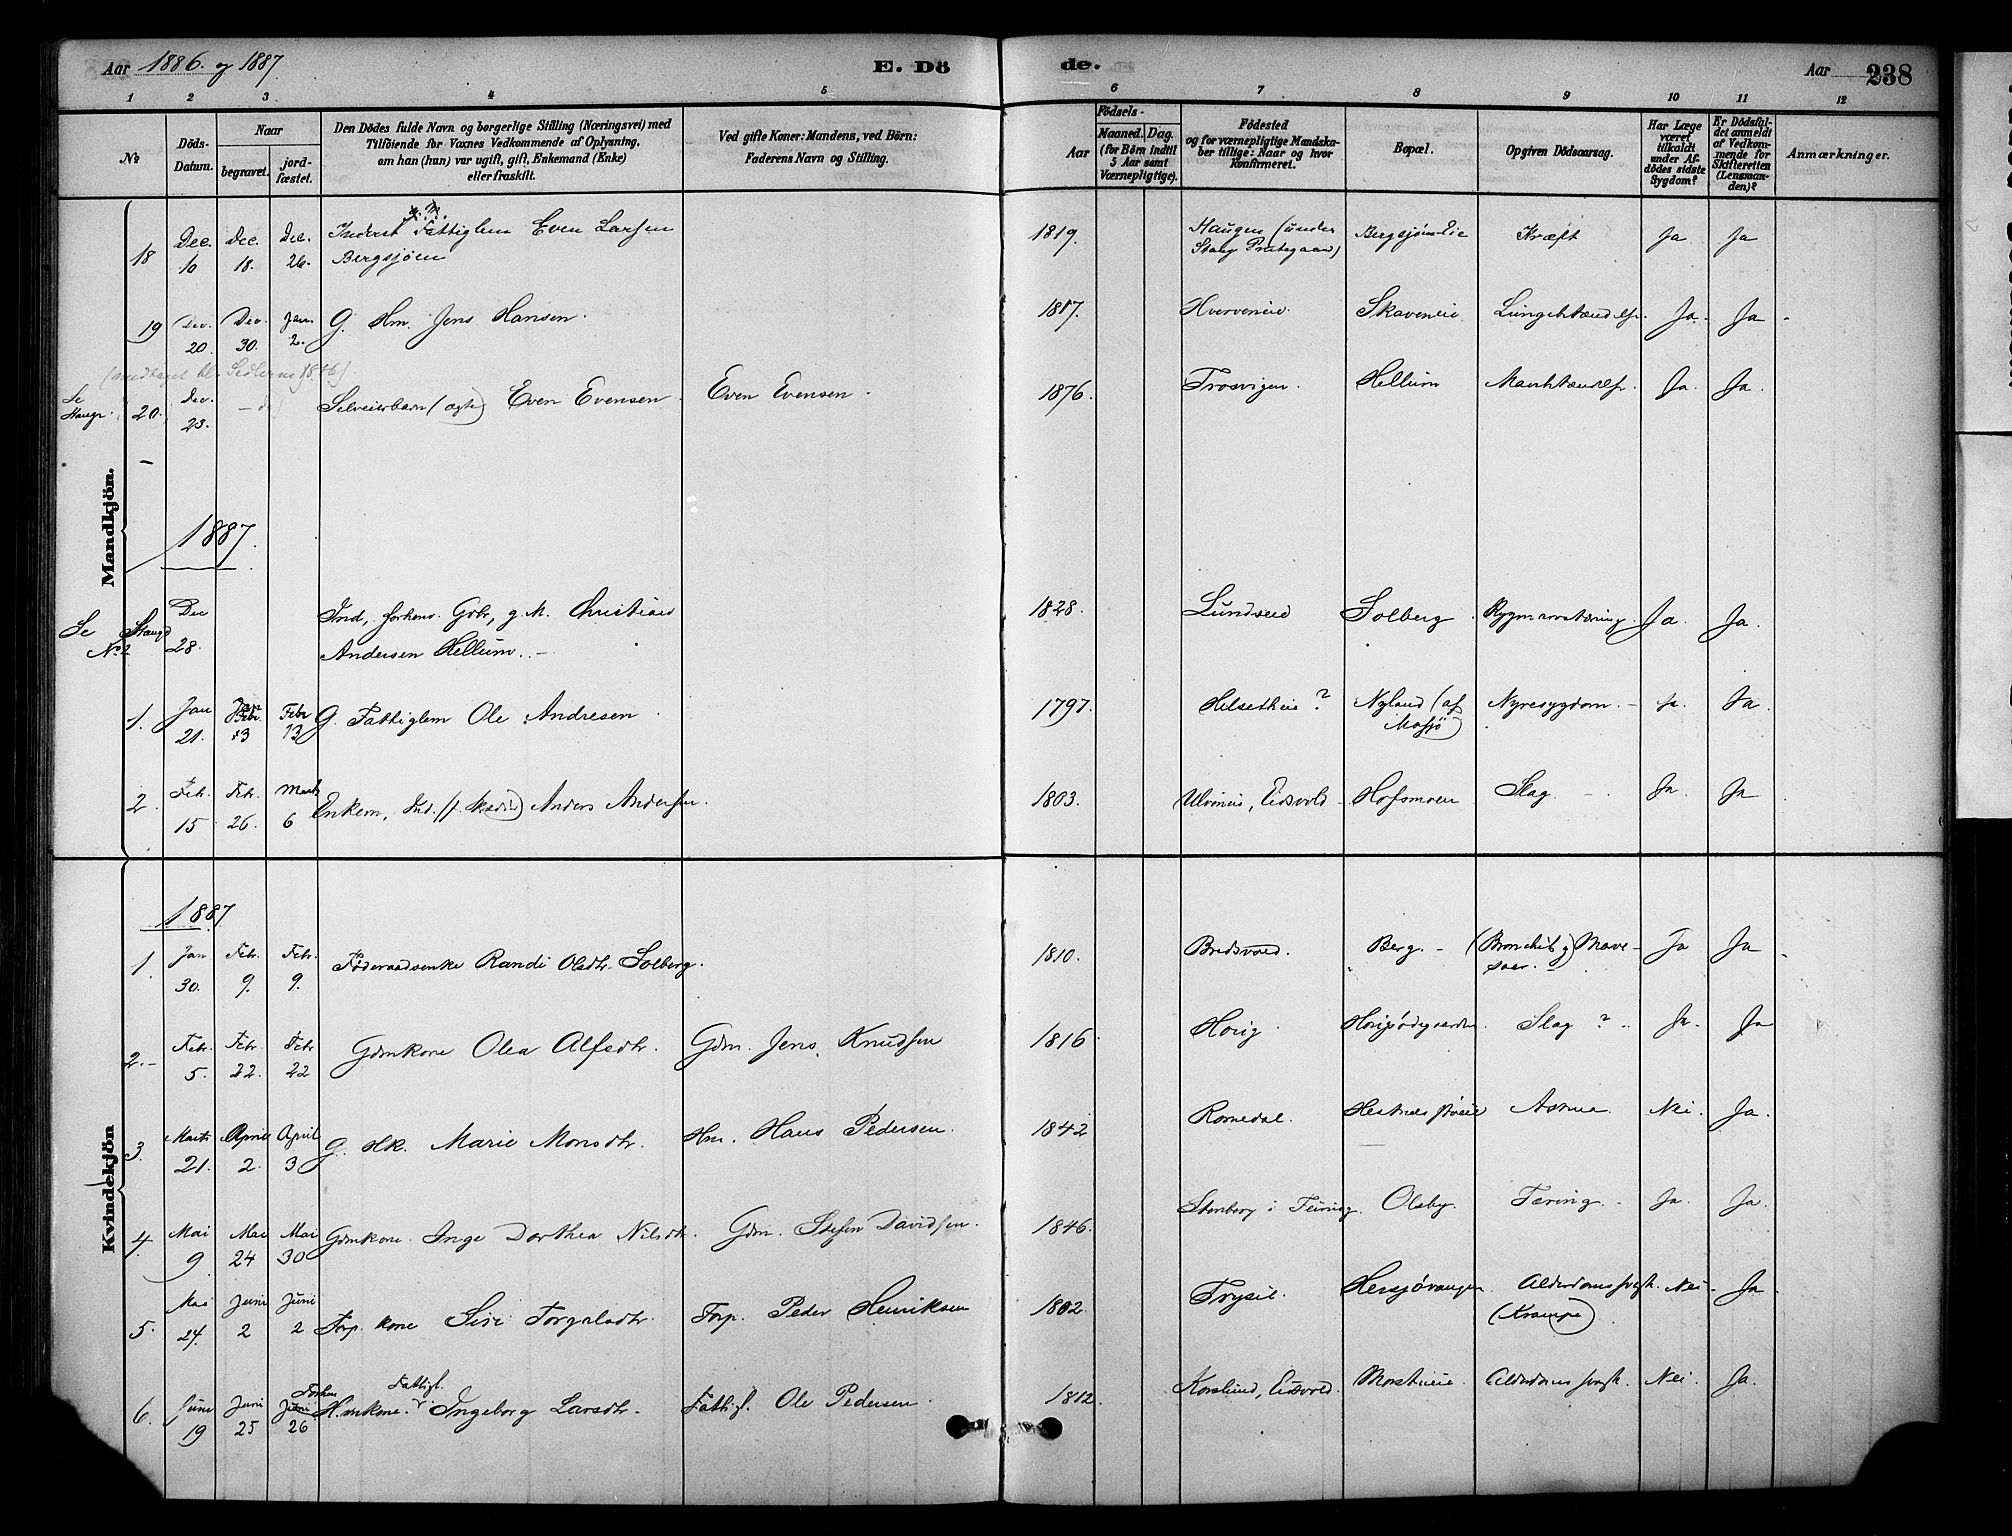 Aar 1886. og 1887
E. Dö
de.
Aar
238
1 2 3 4 5 6 7 8 9 10 11 12
No
Döds-
Datum.
Naar
begravet.
jord-
fæstet.
Den Dödes fulde Navn og borgerlige Stilling (Næringsvei) med
Tilföiende for Voxnes Vedkommende af Oplysning,
om han (hun) var ugift, gift, Enkemand (Enke)
eller fraskilt.
Ved gifte Koner: Mandens, ved Börn:
Faderens Navn og Stilling.
Födsels-
Aar
Maaned. Dag.
(for Börn indtil
5 Aar samt
Værnepligtige).
Födested
og for værnepligtige Mandska-
ber tillige: Naar og hvor
konfirmeret.
Bopæl.
Opgiven Dödsaarsag.
Har Læge
været
tilkaldt
under Af-
dödes sidste
Sygdom?
Er Dödsfal-
det anmeldt
af Vedkom-
mende for
Skifteretten
(Lensman-
den)?
Anmærkninger.
Mandkjön.
18 Dec. 10 Dec. 18. Dec. 26. g. M.
Inderst Fattiglem Even Larsen
Bergsjøen
1819. Haugen (under
Stange Prestegaard) Bergsjøen Eie Kræft Ja Ja
19 Dec. 20. Dec. 30. Jan. 2. G. Hm. Jens Hansen. 1817. Hverveneie Skaveneie Lungebetændelse. Ja. Ja.
Se Stange. 20. Dec. 23. Selveierbarn (ægte) Even Evensen Even Evensen. 1876. Trosvigen. Hellum Ja. Ja.
1887.
Se Stange
No 2 Dec 28. Ind, forhenv. Gbr, g. M. Christian
Andersen Hellum. 1828. Lundseie Solberg Rygmarvstæring. Ja. Ja.
1. Jan 21. Jan Febr. Febr 13 G. Fattiglem Ole Andresen 1797. Helsetheie? Nyland (af
Mosjø) Nyresygdom. Ja. Ja.
2. Feb. 15 Feb. 26. Marts 6 Enkem, Ind. Anders Andersen. 1803. Ulvineie, Eidsvold Hofsmoen Slag Ja. Ja
Kvindekjön
1887
1. Jan 30. Febr. 9. Febr. 9. Føderaadsenke Randi Olsdtr. Solberg. 1810. Bredsvold. Berg. (Bronchit og) Mave-
saar. Ja Ja
2. Febr. 5. Febr. 22. Febr 22 Gdmkone Olea Alfsdtr. Gdm. Jens Knudsen 1816 Horig. Slag? Ja. Ja
3. Marts 21. April 2. April 3 G. Hk. Marie Monsdtr. Hm. Hans Pedersen. 1842 Romedal. Astma Nei. Ja.
4 Mai 9 Mai 24 Mai 30 Gdmkone. Inge Dorthea Nilsdtr. Gdm. Steffen Davidsen. 1846. Stenberg i Feiring. Olsby. Tæring. Ja. Ja.
5. Mai 24. Juni 2 Juni 2 Torp. kone Siri Torgalsdtr. Torp. Peder Henriksen 1802. Trysil. Hersjøvangen Alderdomssvagh.
(Krampe) Nei. Ja
6. Juni 19 Juni 25 Juni 26 Forhen Fattigl.
Hmkone. Ingeborg Larsdtr. Fattigl. Ole Pedersen 1812. Korslund, Eidsvold. Morstueeie Alderdomssvagh. Nei. Ja.